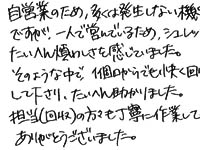 自営業のため、多くは発生しない機
ですが、一人で営んでいるため、シュレッ
たいへん煩わしさを感じていました。
そのような中で、1個口からでも快く回
して下さり、たいへん助かりました。
担当(回収)の方々も丁寧に作業して
ありがとうございました。